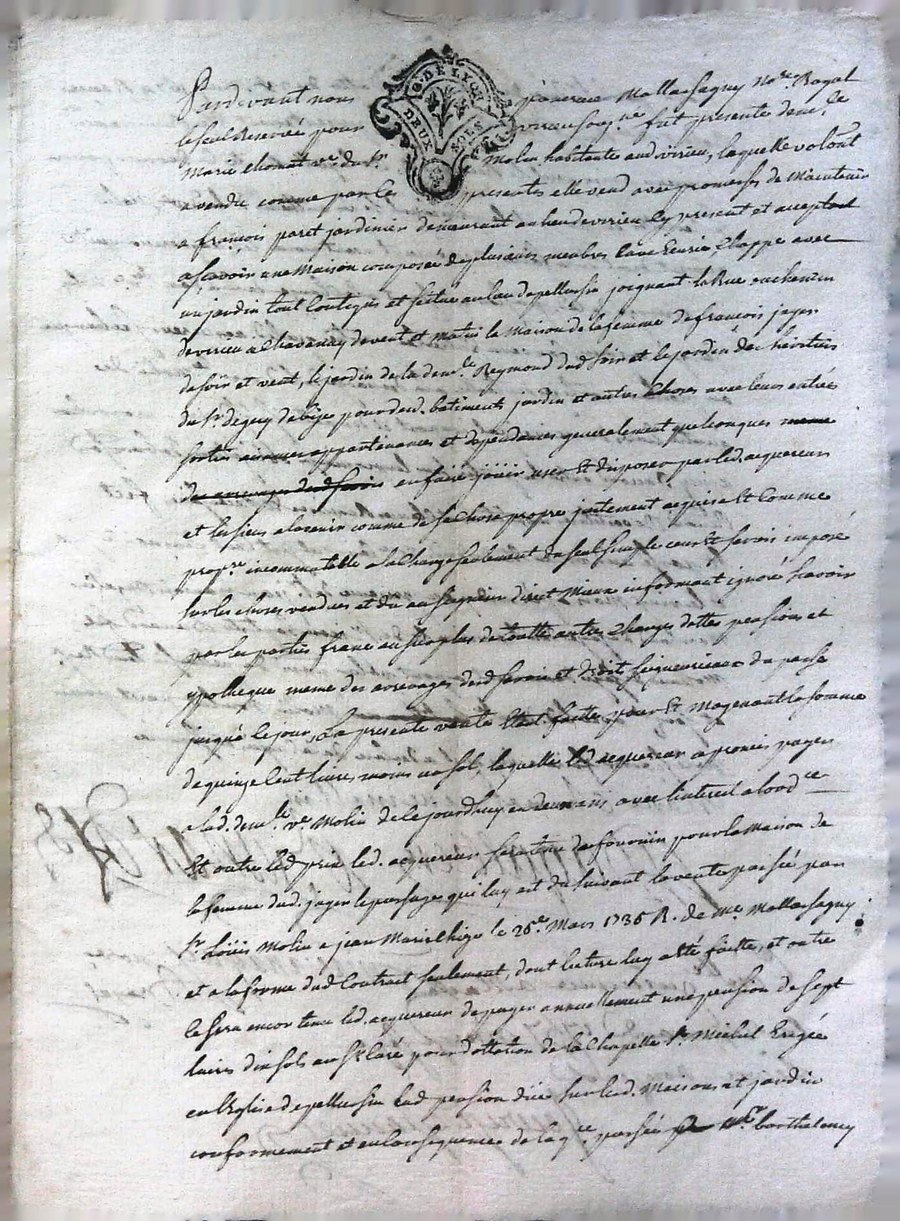 G. DE LYON
DEUX SOLS
Pardevant nous
le seul Reservé pour fut presente dem.lle
Marie vve du Sr Molin habitante aud. virieu, laquelle volont.
a vendu comme par le presentes elle vend avec promesses de Maintenir
a françois paret jardinier demeurant au lieu de virieu icy present et acceptant
ascavoir une Maison composée de plusieurs membres avec
un jardin tout contigus et scitué au lieu de pellussin joignant la Rue ou chemin
de virieu a Chavanay de vent et matin la Maison de la femme de francois jager
de soir et vent, le jardin de la dem.lle Reymond dud. soir et le jardin des héritiers
du Sr pour desd. batiments jardin et autres Choses avec leurs entrées
sorties appartenances et dependances generalement quelconques meme
des arrerages dud. servis en faire jöüir user Et disposer par led. acquereur
et les siens a lavenir comme de sa Chose propre justement acquise Et Comme
prop.re incommutable a la Charge seulement du seul simple cens Et servis imposé
sur les choses vendues et du au seigneur direct Mieux informant ignoré scavoir
par les parties franc au surplus de toutte autres Charges dettes pensions et
ypotheque meme des arrerages dud. servis et droit seigneuriaux du passé
jusquà ce jour, La presente vente Etant faitte pour Et Moyenant la somme
de quinze Cent livres moins un sol, laquelle led. acquereur a promis payer
a lad. dem.lle Vve Molin de ce jourdhuy en deux ans avec l'interet
Et outre led. prix led. acquereur sera tenu de pour la Maison de
la femme dud. jager le passage qui luy est du suivant la vente passée par
Sr Loüis Molin a jean le 26.e Mars 1736 R. de Me Mallassagny
et a la forme dud. Contract seulement, dont lecture luy a été faitte, et outre
ce sera encor tenu led. acquereur de payer annuellement une pension de sept
livres dix sols au Sr Curé pour dottation de la Chapelle St Michel Erigée
en l'Eglise de pellussin lad. pension düe sur lesd. Maisons et jardin
conformement et en consequence de la passée par Me barthelemy